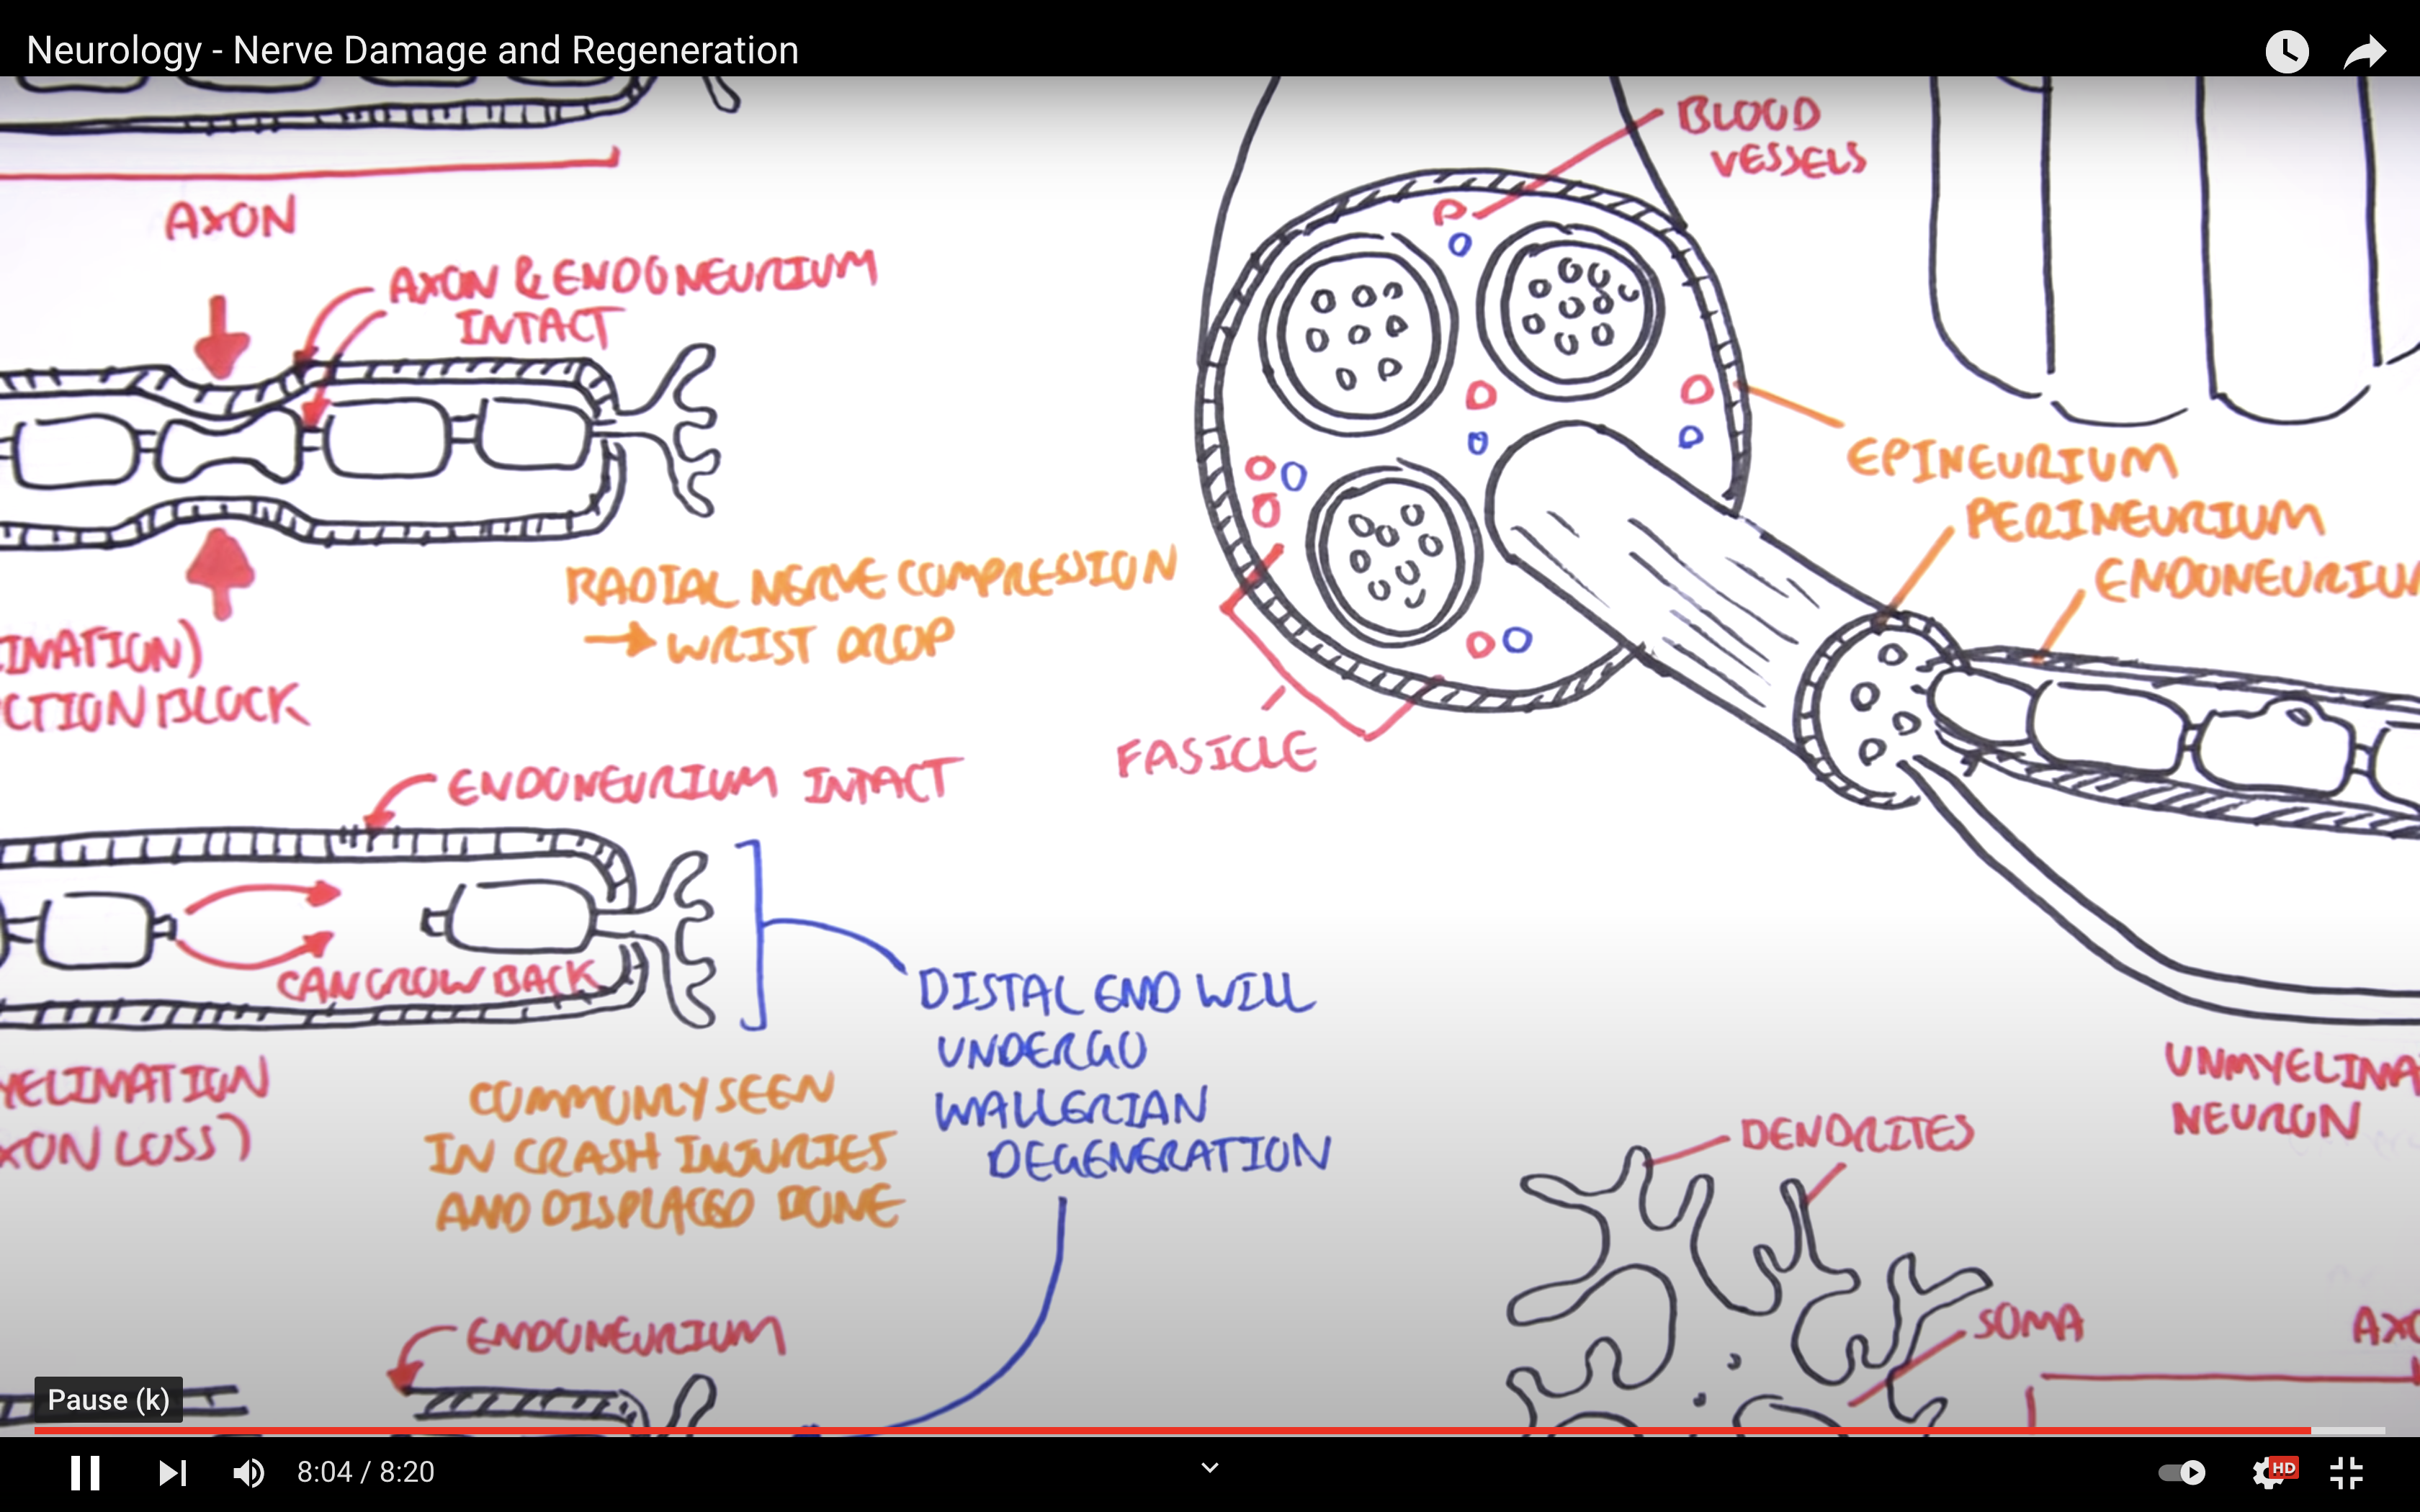 Neurology - Nerve Damage and Regeneration
BLOOD
VESSELS
AXON
AXON & ENDONEURIUM
INTACT
EPINEURIUM
PERINEURIUM
ENDONEURIU
RADIAL NERVE COMPRESSION
→ WRIST DROP
IMATION)
CTION BLOCK
FASICLE
ENDONEURIUM INTACT
CAN GROW BACK
DISTAL END WILL
UNDERGO
WALLERIAN
DEGENERATION
YELIMATION
XON LOSS)
COMMONLY SEEN
IN CRASH INJURIES
AND DISPLACED BONE
UNMYELIMA
NEURON
DENDRITES
SOMA
AXO
ENDONEURIUM
Pause (k)
8:04 / 8:20
HD